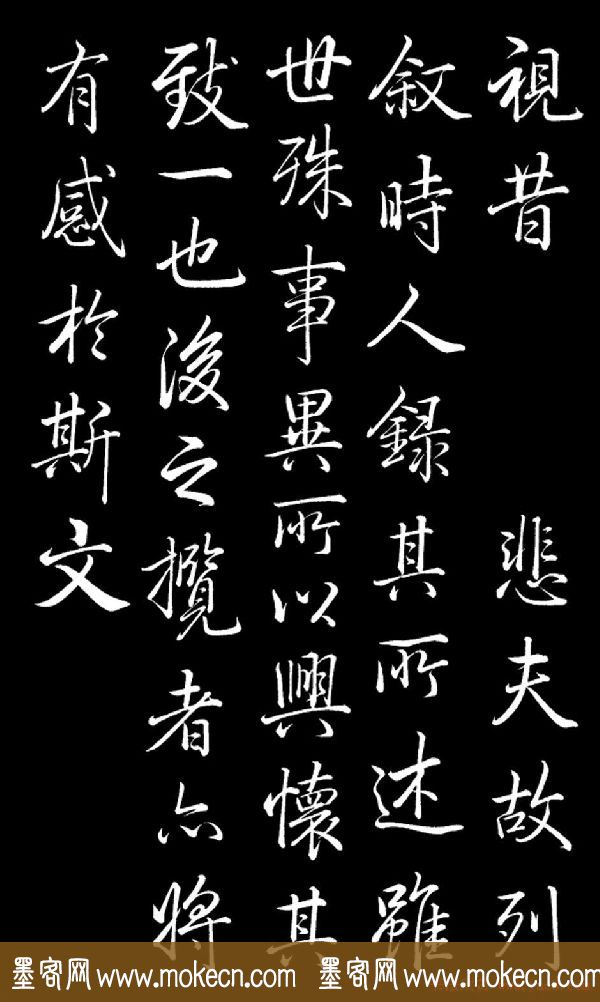 視昔 悲夫故列
叙時人録其所述雖
世殊事異所以興懷其
致一也後之攬者亦將
有感於斯文
墨客网 www.mokecn.com 墨客网 www.mokecn.com